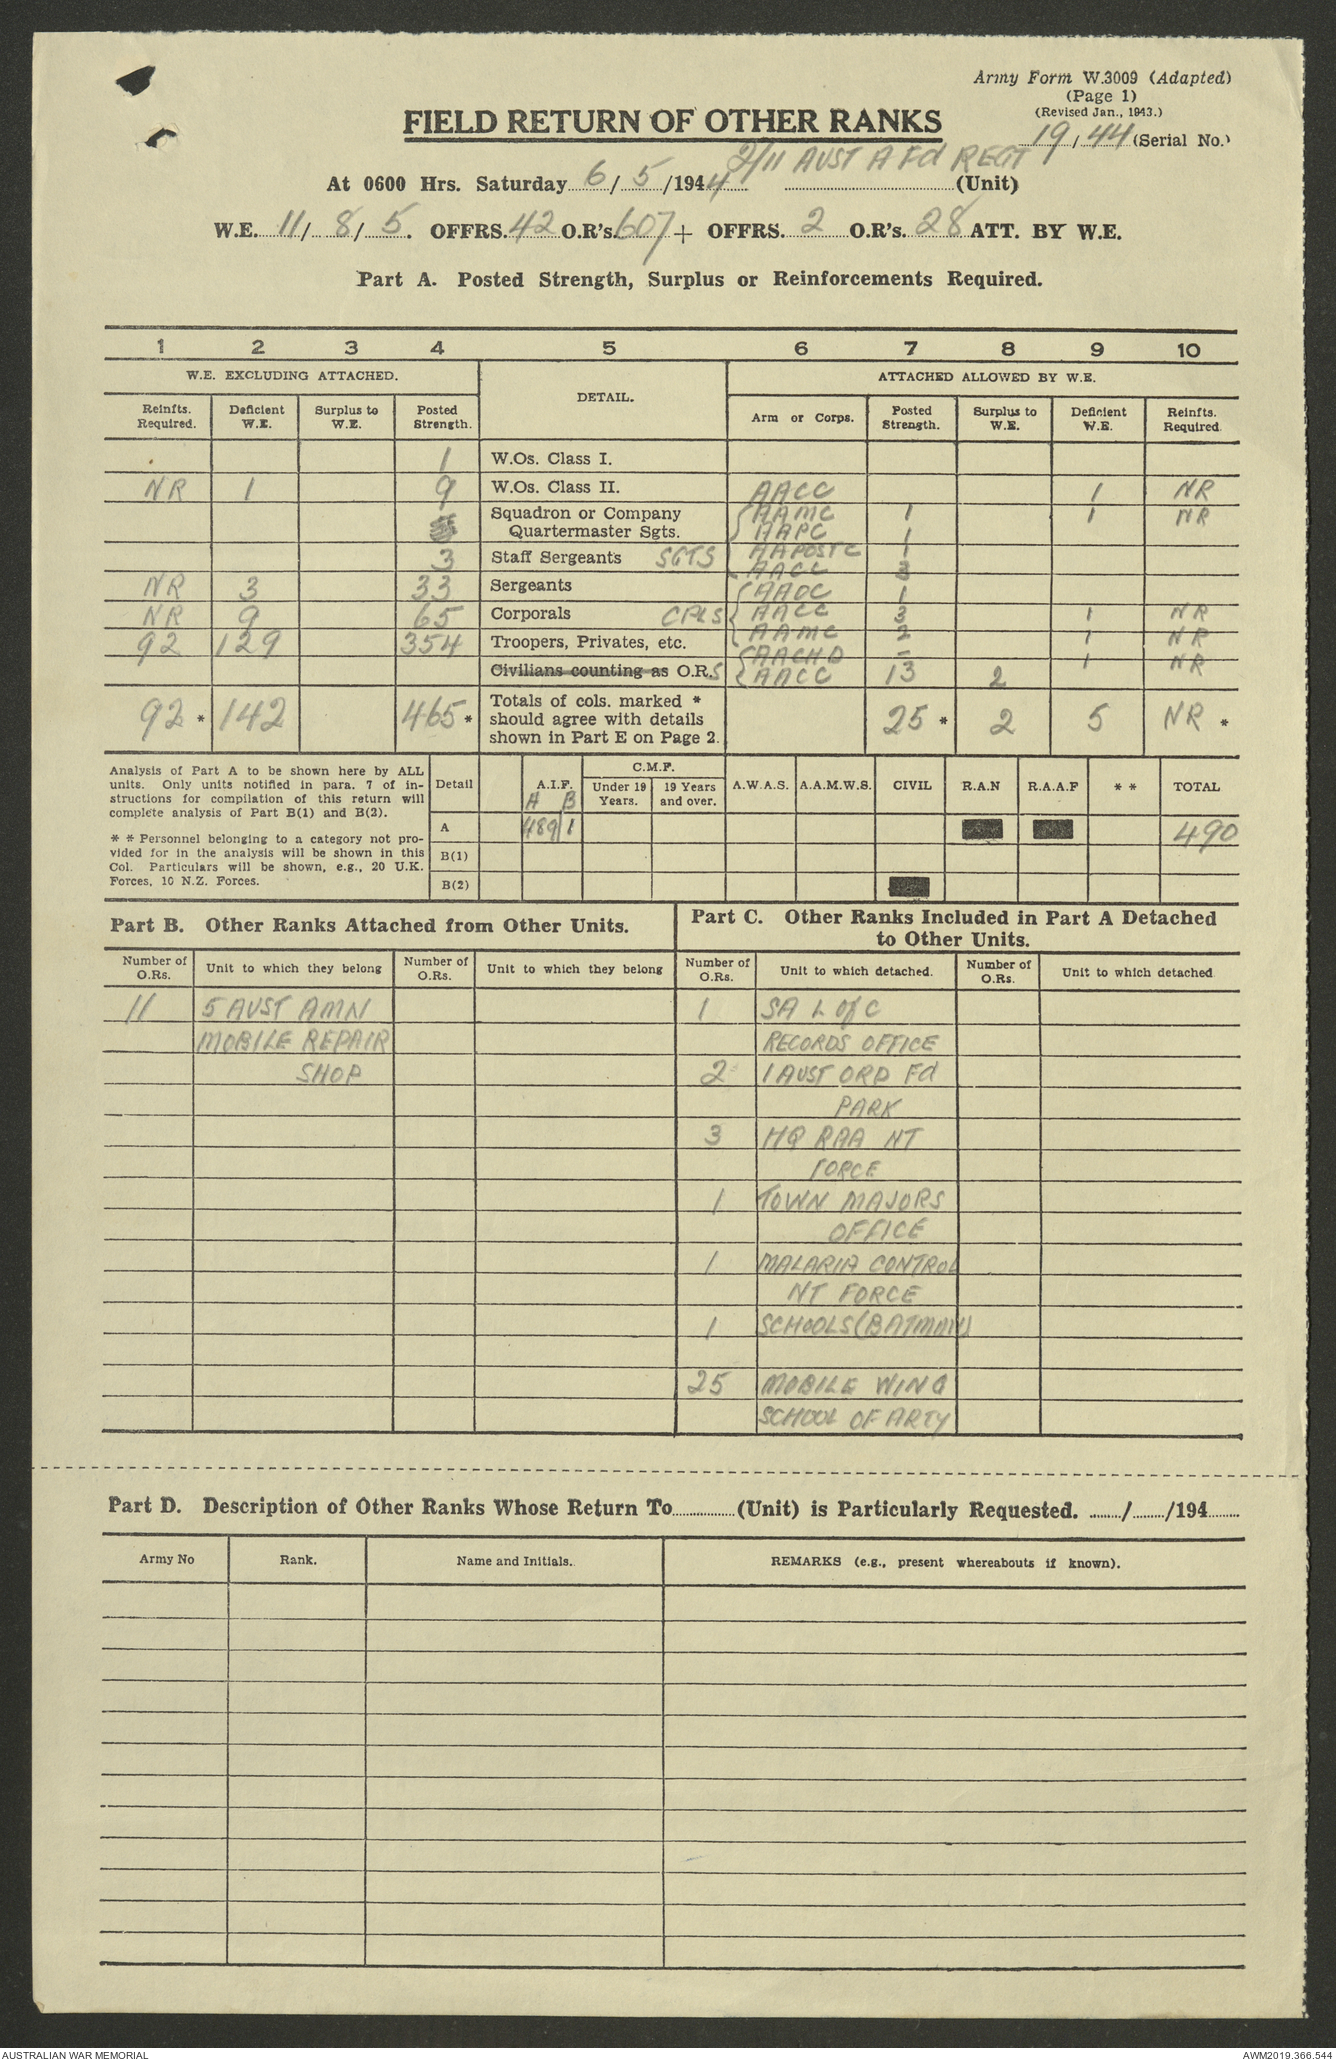 Army Form W.3009 (Adapted)
(Page 1)
(Revised Jan., 1943.)
FIELD RETURN OF OTHER RANKS
19/44 (Serial No.)
2/11 AUST A Fd REGT
At 0600 Hrs. Saturday 6/5/1944 (Unit)
W.E. 11/8/5. OFFRS. 42 O.R's. 607 + OFFRS. 2 O.R's. 28 ATT. BY W.E.
Part A. Posted Strength, Surplus or Reinforcements Required.
1 2 3 4 5 6 7 8 9 10
W.E. EXCLUDING ATTACHED. DETAIL. ATTACHED ALLOWED BY W.E.
Reinfts. Required. Deficient W.E. Surplus to W.E. Posted Strength. Arm or Corps. Posted Strength. Surplus to W.E. Deficient W.E. Reinfts. Required.
1 W.Os. Class I.
NR 1 9 W.Os. Class II. AACC 1 NR
Squadron or Company AAMC 1 1 NR
Quartermaster Sgts. AAPC 1
3 Staff Sergeants SGTS AAPOSTC 1
AACC 3
NR 3 33 Sergeants AAOC 1
NR 9 65 Corporals CPLS AACC 3 1 NR
92 129 354 Troopers, Privates, etc. AAMC 2 1 NR
AACHD - 1 NR
Civilians counting as O.R.S AACC 13 2
92 * 142 465 * Totals of cols. marked * should agree with details shown in Part E on Page 2. 25 * 2 5 NR *
Analysis of Part A to be shown here by ALL
units. Only units notified in para. 7 of in-
structions for compilation of this return will
complete analysis of Part B(1) and B(2).
* * Personnel belonging to a category not pro-
vided for in the analysis will be shown in this
Col. Particulars will be shown, e.g., 20 U.K.
Forces, 10 N.Z. Forces.
C.M.F.
Detail A.I.F. A B Under 19 Years. 19 Years and over. A.W.A.S. A.A.M.W.S. CIVIL R.A.N R.A.A.F * * TOTAL
A 489 1 490
B(1)
B(2)
Part B. Other Ranks Attached from Other Units.
Number of O.Rs. Unit to which they belong Number of O.Rs. Unit to which they belong
11 5 AUST AMN
MOBILE REPAIR
SHOP
Part C. Other Ranks Included in Part A Detached
to Other Units.
Number of O.Rs. Unit to which detached. Number of O.Rs. Unit to which detached
1 SA L of C
RECORDS OFFICE
2 1 AUST ORD Fd
PARK
3 HQ RAA NT
FORCE
1 TOWN MAJORS
OFFICE
1 MALARIA CONTROL
NT FORCE
1 SCHOOLS (BATMAN)
25 MOBILE WING
SCHOOL OF ARTY
Part D. Description of Other Ranks Whose Return To............(Unit) is Particularly Requested. ......../......../194........
Army No Rank. Name and Initials. REMARKS (e.g., present whereabouts if known).
AUSTRALIAN WAR MEMORIAL
AWM2019.366.544